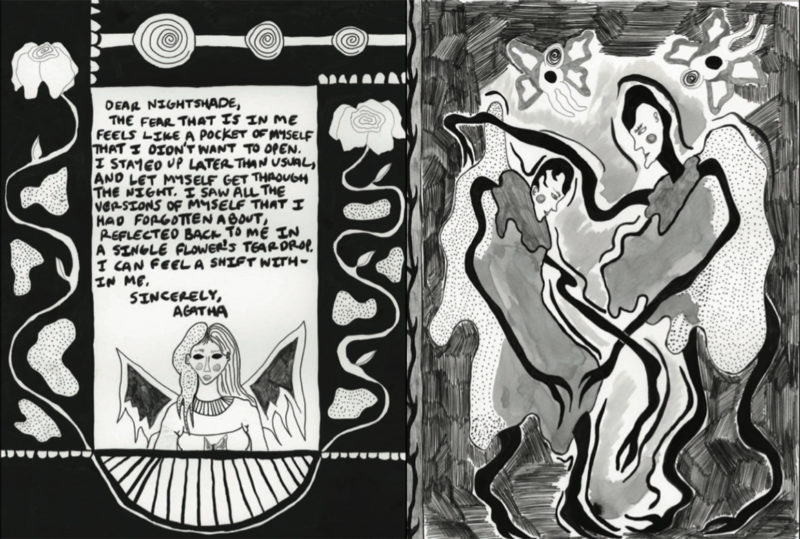 DEAR NIGHTSHADE,
THE FEAR THAT IS IN ME
FEELS LIKE A POCKET OF MYSELF
THAT I DIDN'T WANT TO OPEN.
I STAYED UP LATER THAN USUAL,
AND LET MYSELF GET THROUGH
THE NIGHT. I SAW ALL THE
VERSIONS OF MYSELF THAT I
HAD FORGOTTEN ABOUT,
REFLECTED BACK TO ME IN
A SINGLE FLOWER'S TEARDROP.
I CAN FEEL A SHIFT WITH-
IN ME.
SINCERELY,
AGATHA